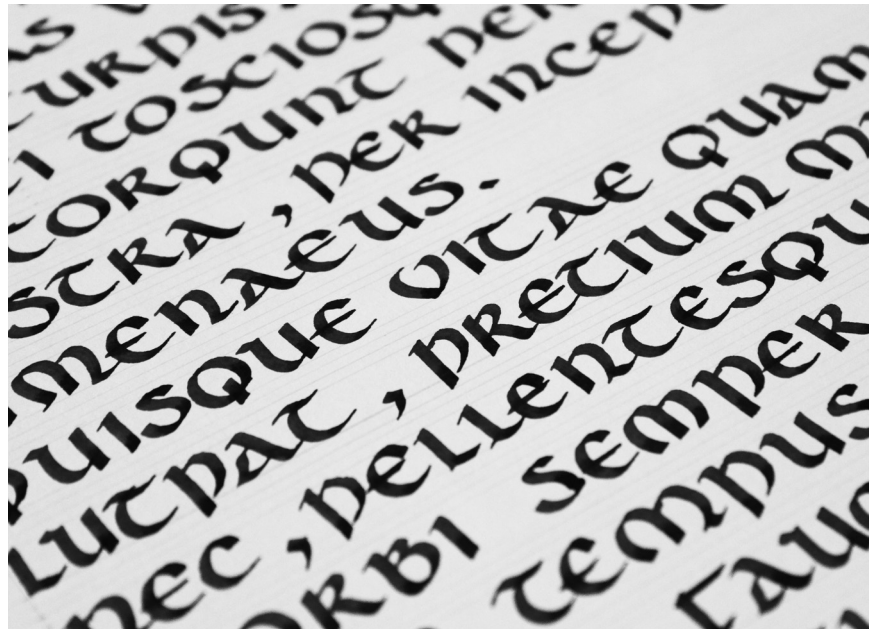 TURPIS
CI TOSCIOSQU
TORQUNT PER
STRA , PER INCEP
MENAEUS.
QUISQUE VITAE QUAM
LUTPAT , PRETIUM
NEC , PELLENTESQU
ORBI SEMPER
TEMPUS
FAUC